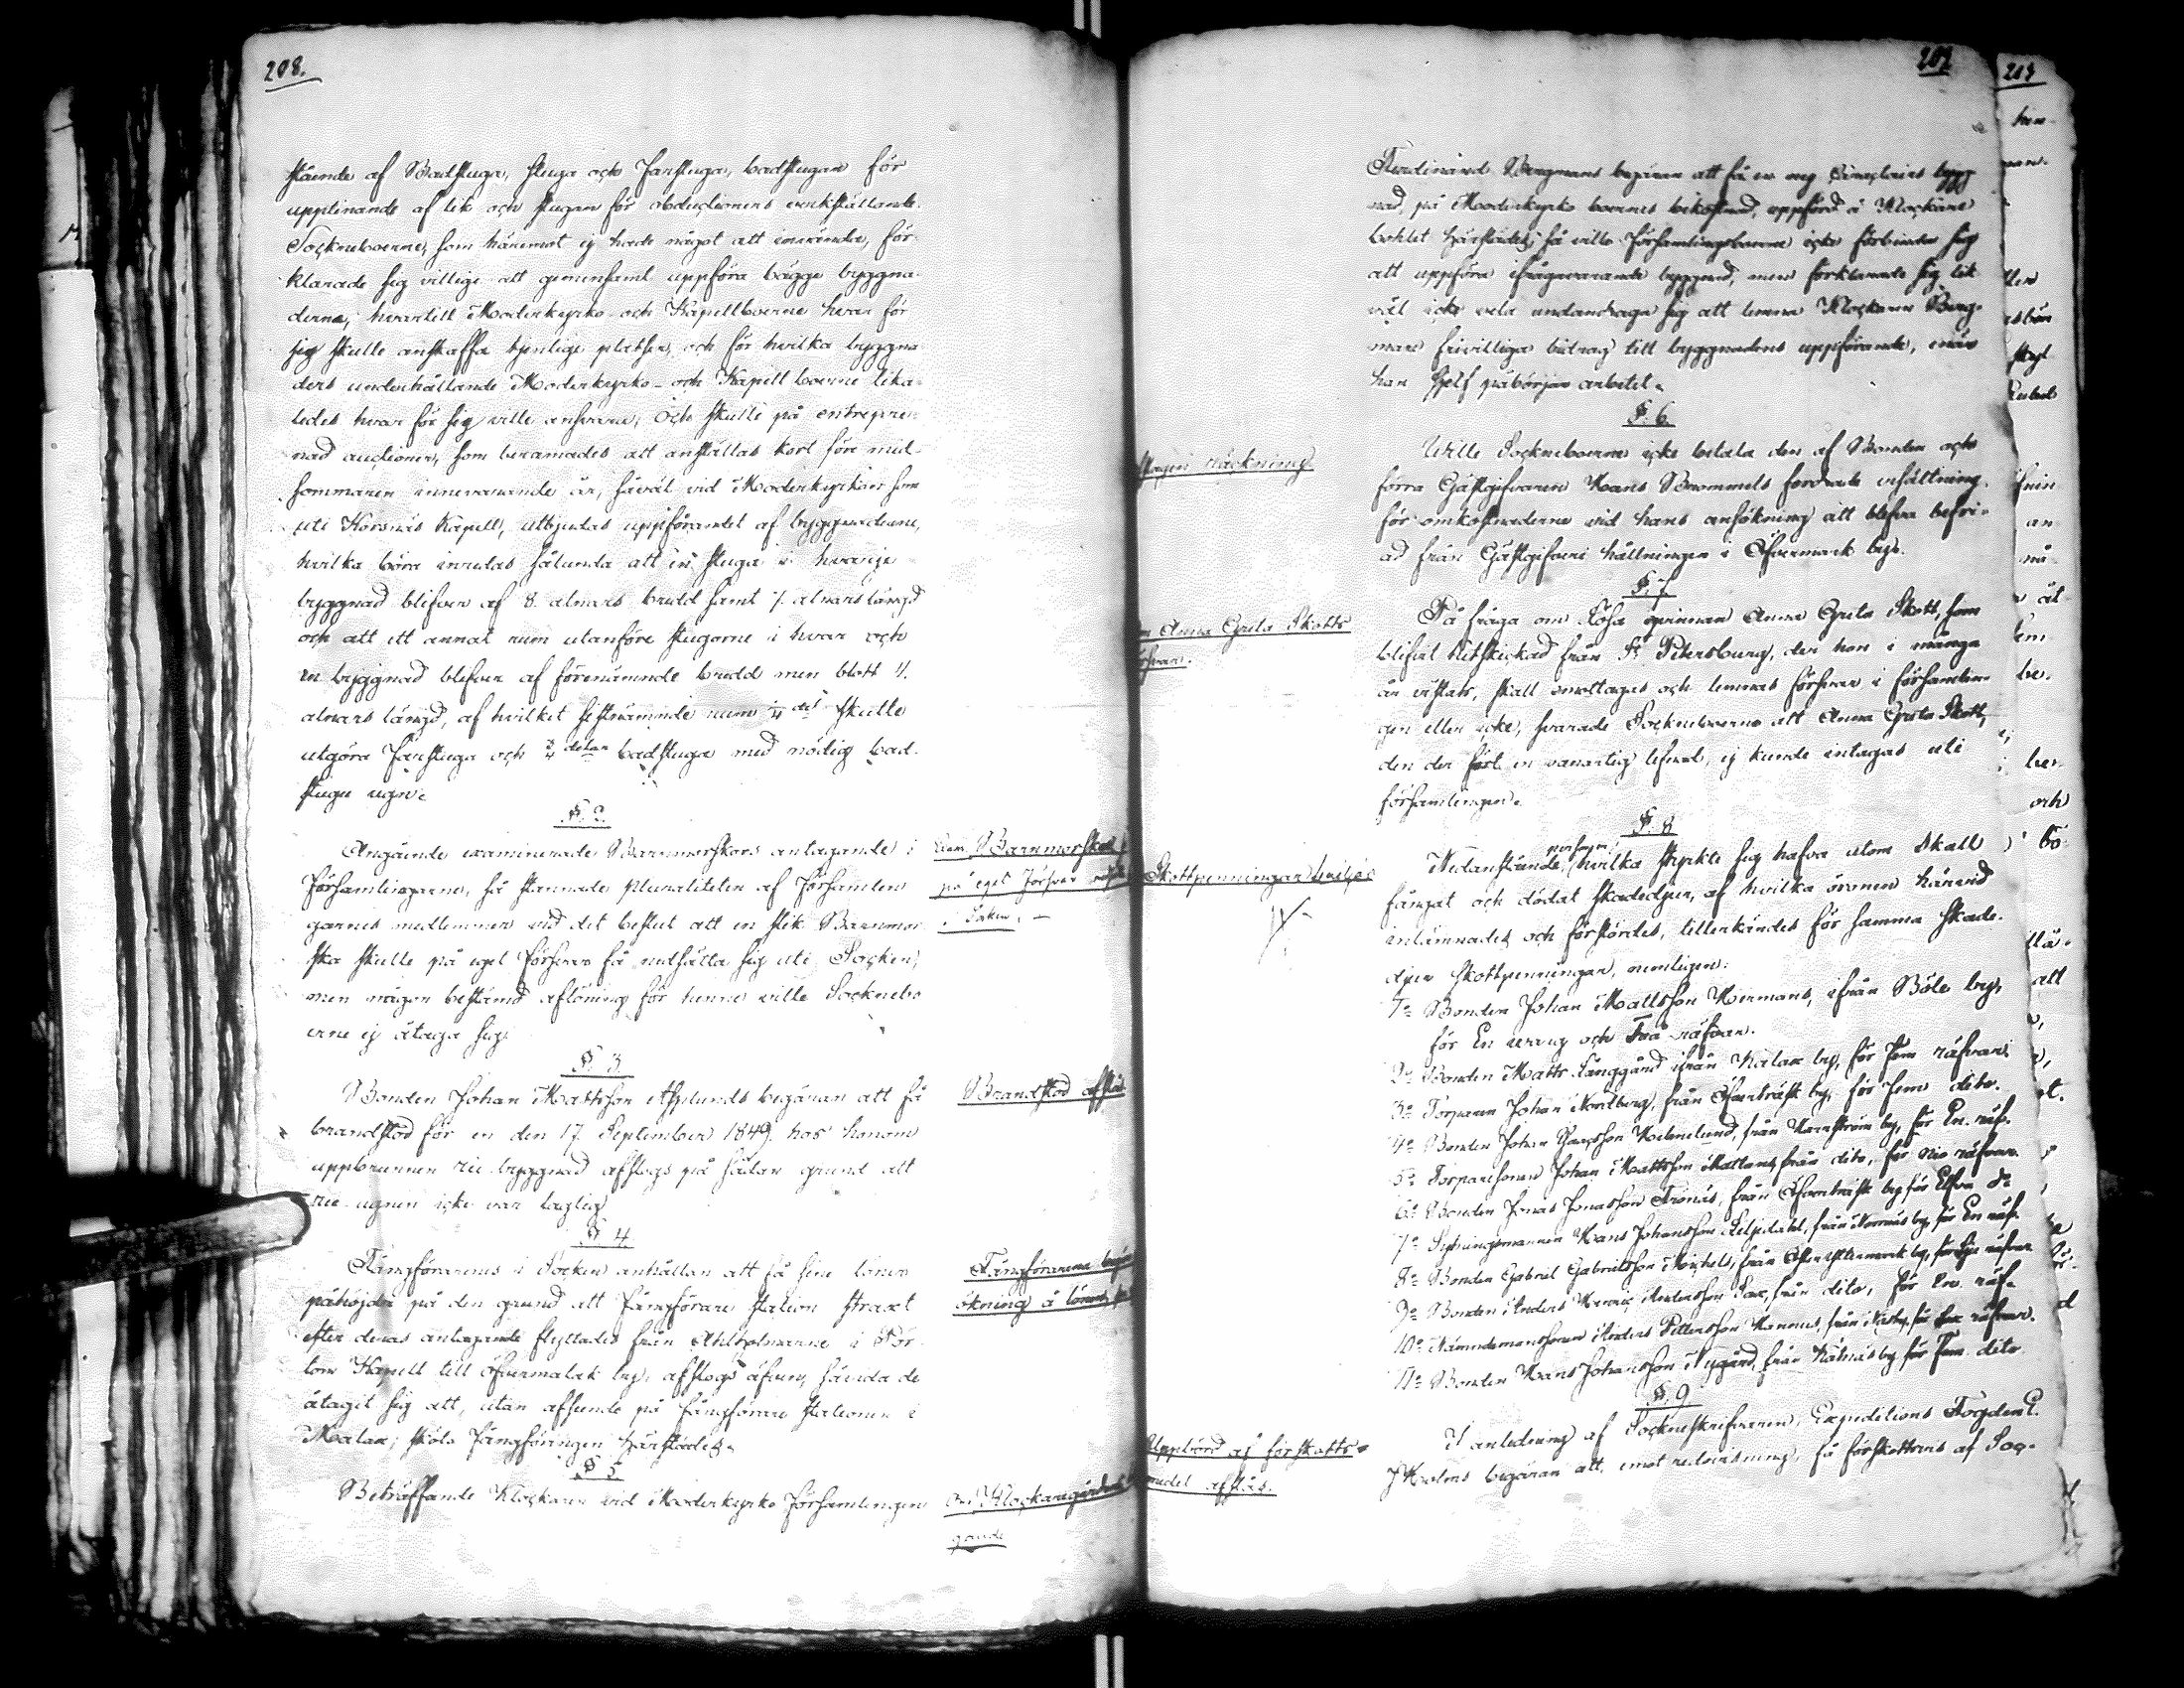 208.
stående af Badstuga, stuga och Farstuga, badstugan för
upptinande af lik och stugan för obductioners verkställande.
Sockneboerne, som häremot ej hade något att invända, för-
klarade sig villige att gemensamt uppföra bägge byggna-
derna, hvartill Moderkyrko- och Kapellboerne hvar för
sig skulle anskaffa tjenlige platser, och för hvilka byggna-
ders underhållande Moderkyrko- och Kapellboerne lika-
ledes hvar för sig ville ansvara; Och skulle på entrepre-
nad auctioner, som beramades att anställas kort före mid-
sommaren innevarande år, såväl vid Moderkyrkan som
uti Korsnäs Kapell, utbjudas uppförandet af byggnaderne,
hvilka böra inredas sålunda att en stuga i hvarje
byggnad blifver af 8 alnars bredd samt 7. alnars längd
och att ett annat rum utanföre stugorne i hvar och
en byggnad blifver af förenämnde bredd men blott 4.
alnars längd, af hvilket sistnämnde rum 1/4 del skulle
utgöra Farstuga och 3/4 delar badstuga med nödig bad-
stugu ugn.
§. 2.
Angående examinerade Barnmorskors antagande i
Församlingarne, så stannade pluraliteten af Församlin-
garnes medlemmar vid det beslut att en slik Barnmor-
ska skulle på eget försvar få nedsätta sig uti Socken,
men någon bestämd aflöning för henne ville Sockenbo-
erne ej åtaga sig.
Barnmorska
på eget försvar
i Socken. –
§ 3.
Bonden Johan Mattsson Asplunds begäran att få
brandstod för en den 17 September 1849. hos honom
uppbrunnen rie byggnad afslogs på sådan grund att
rie-ugnen icke var laglig.
Brandstod afslås
§ 4.
Fångförarenes i Socken anhållan att få sine löner
påhöjda på den grund att fångförare station straxt
efter deras antagande flyttades från Ahlholmarne i Pör-
tom Kapell till Öfvermalax by, afslogs äfven, såvida de
åtagit sig att, utan afseende på fångförare stationen i
Malax, sköta fångföringen härstädes.
Fångförarenes
ökning å lönen
§ 5
Beträffande Klockaren vid Moderkyrko församlingen
om Klockaregården
209
Ferdinand Bergmans begäran att få en ny bygg
nad, på Moderkyrko boernes bekostnad, uppförd å Klockare
bohlet härstädes, så ville Församlingsboerne icke förbinda sig
att uppföra ifrågavarande byggnad, men förklarade sig lik
väl icke vela undandraga sig att lemna Klockaren Berg-
man frivilliga bidrag till byggnadens uppförande, enär
han sjelf påbörjar arbetet.
§. 6.
Wille Sockneboerne icke betala den af Bonden och
förra Gästgifvaren Hans Brommels fordrade ersättning
för omkostnaderne vid hans ansökning att blifva befri-
ad från Gästgifveri hållningen i Öfvermark by.
räckning.
§. 7
På fråga om Lösa qvinnan Anna Greta Skott, som
blifvit hitskickad från St Petersburg, der hon i många
år vistats, skall emottagas och lemnas försvar i församlin-
gen eller icke, svarade Sockneboerne att Anna Greta Skott,
den der fört en vanartig lefnad, ej kunde intagas uti
församlingen.
Anna Greta Skotts
försvar.
§. 8
personer,
Nedanstående hvilka styrkte sig hafva utom skall
fångat och dödat skadedjur, af hvilka öronen härvid
inlämnades och förstördes, tillerkändes för samma skade-
djur skottpenningar, nemligen:
Skottpenningar
1o Bonden Johan Mattsson Hermans, ifrån Böle by,
för En warg och Två räfvar.
2o Bonden Matts Långgård ifrån Kalax by, för Fem räfvar.
3o Torparen Johan Nordberg, från Öfverträsk by, för Fem dito.
4o Bonden Johan Jacobsson Holmlund, från Harrström by, för En räf.
5o Torparesonen Johan Mattsson Mattans, från dito, för Nio räfvar.
6o Bonden Jonas Jonasson Träsnäs, från Öfverträsk by för Elfva do
7o Sytningsmannen Hans Johansson Liljedahl, från Norrnäs by, för En räf.
8o Bonden Gabriel Gabrielsson Michels, från Yttermark by, för räfvar
9o Bonden Anders Henric Andersson Sax, från dito, för En räf.
10o Nämndemanssonen Anders Pettersson Hannus, från Näsby, för räfvar.
11o Bonden Hans Johansson Nygård, från Kalnäs by, för Fem dito
§. 9
I anledning af Sockneskrifvaren, Expeditions Fogden E.
J Holms begäran att, emot redovisning, få förskottsvis af Soc-
Uppbörd af förskotts-
medel afslås.